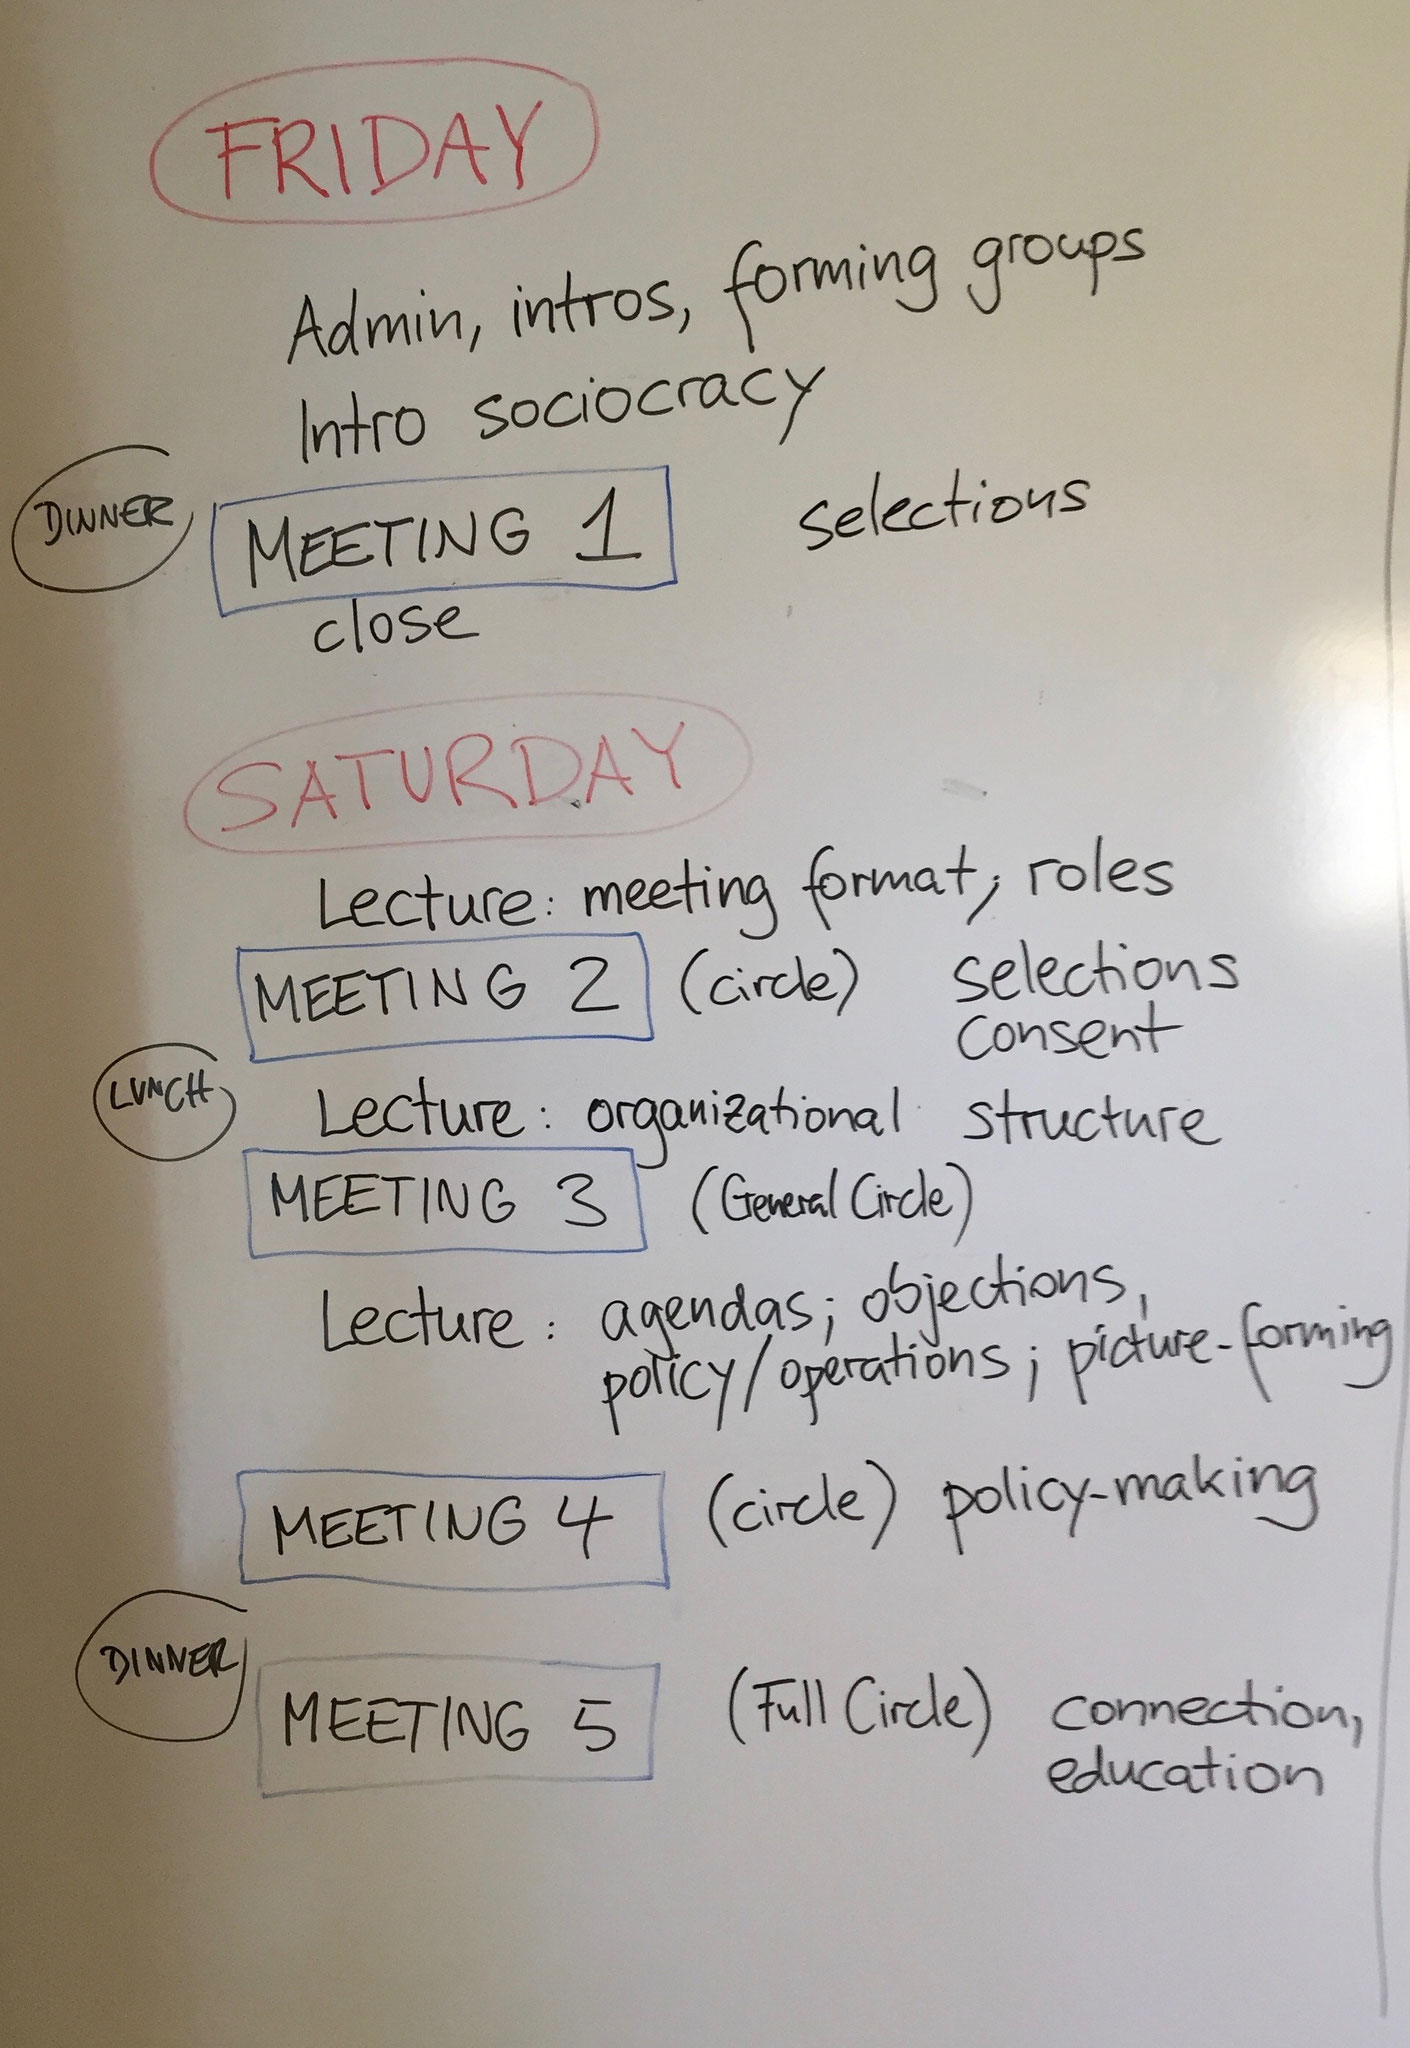 FRIDAY
Admin, intros, forming groups
Intro sociocracy
DINNER
MEETING 1 selections
close
SATURDAY
Lecture: meeting format; roles
MEETING 2 (circle) selections
consent
LUNCH
Lecture: organizational structure
MEETING 3 (General Circle)
Lecture: agendas; objections,
policy/operations; picture-forming
MEETING 4 (circle) policy-making
DINNER
MEETING 5 (Full Circle) connection,
education